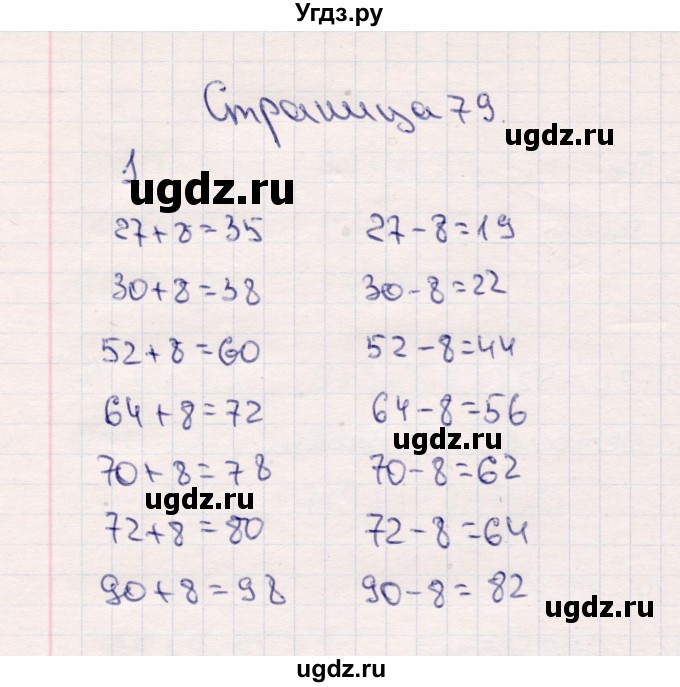 Угдз.ру
Страница 79.
1
ugdz.ru
ugdz.ru
27+8=35 27-8=19
30+8=38 30-8=22
52+8=60 52-8=44
64+8=72 64-8=56
ugdz.ru
70+8=78 70-8=62
ugdz.ru
72+8=80 72-8=64
90+8=98 90-8=82
ugdz.ru
ugdz.ru